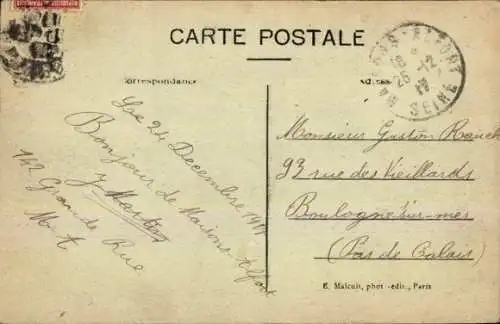 CARTE POSTALE
Correspondance
Adresse
MAISONS-ALFORT
18
26-12
SEINE
Le 24 Decembre 1911
Bonjour de Maisons-Alfort
J
162 Grande Rue
M-A
Monsieur Gaston Rauch
93 rue des Vieillards
Boulogne sur mer
(Pas de Calais)
E. Malcuit, phot.-édit., Paris